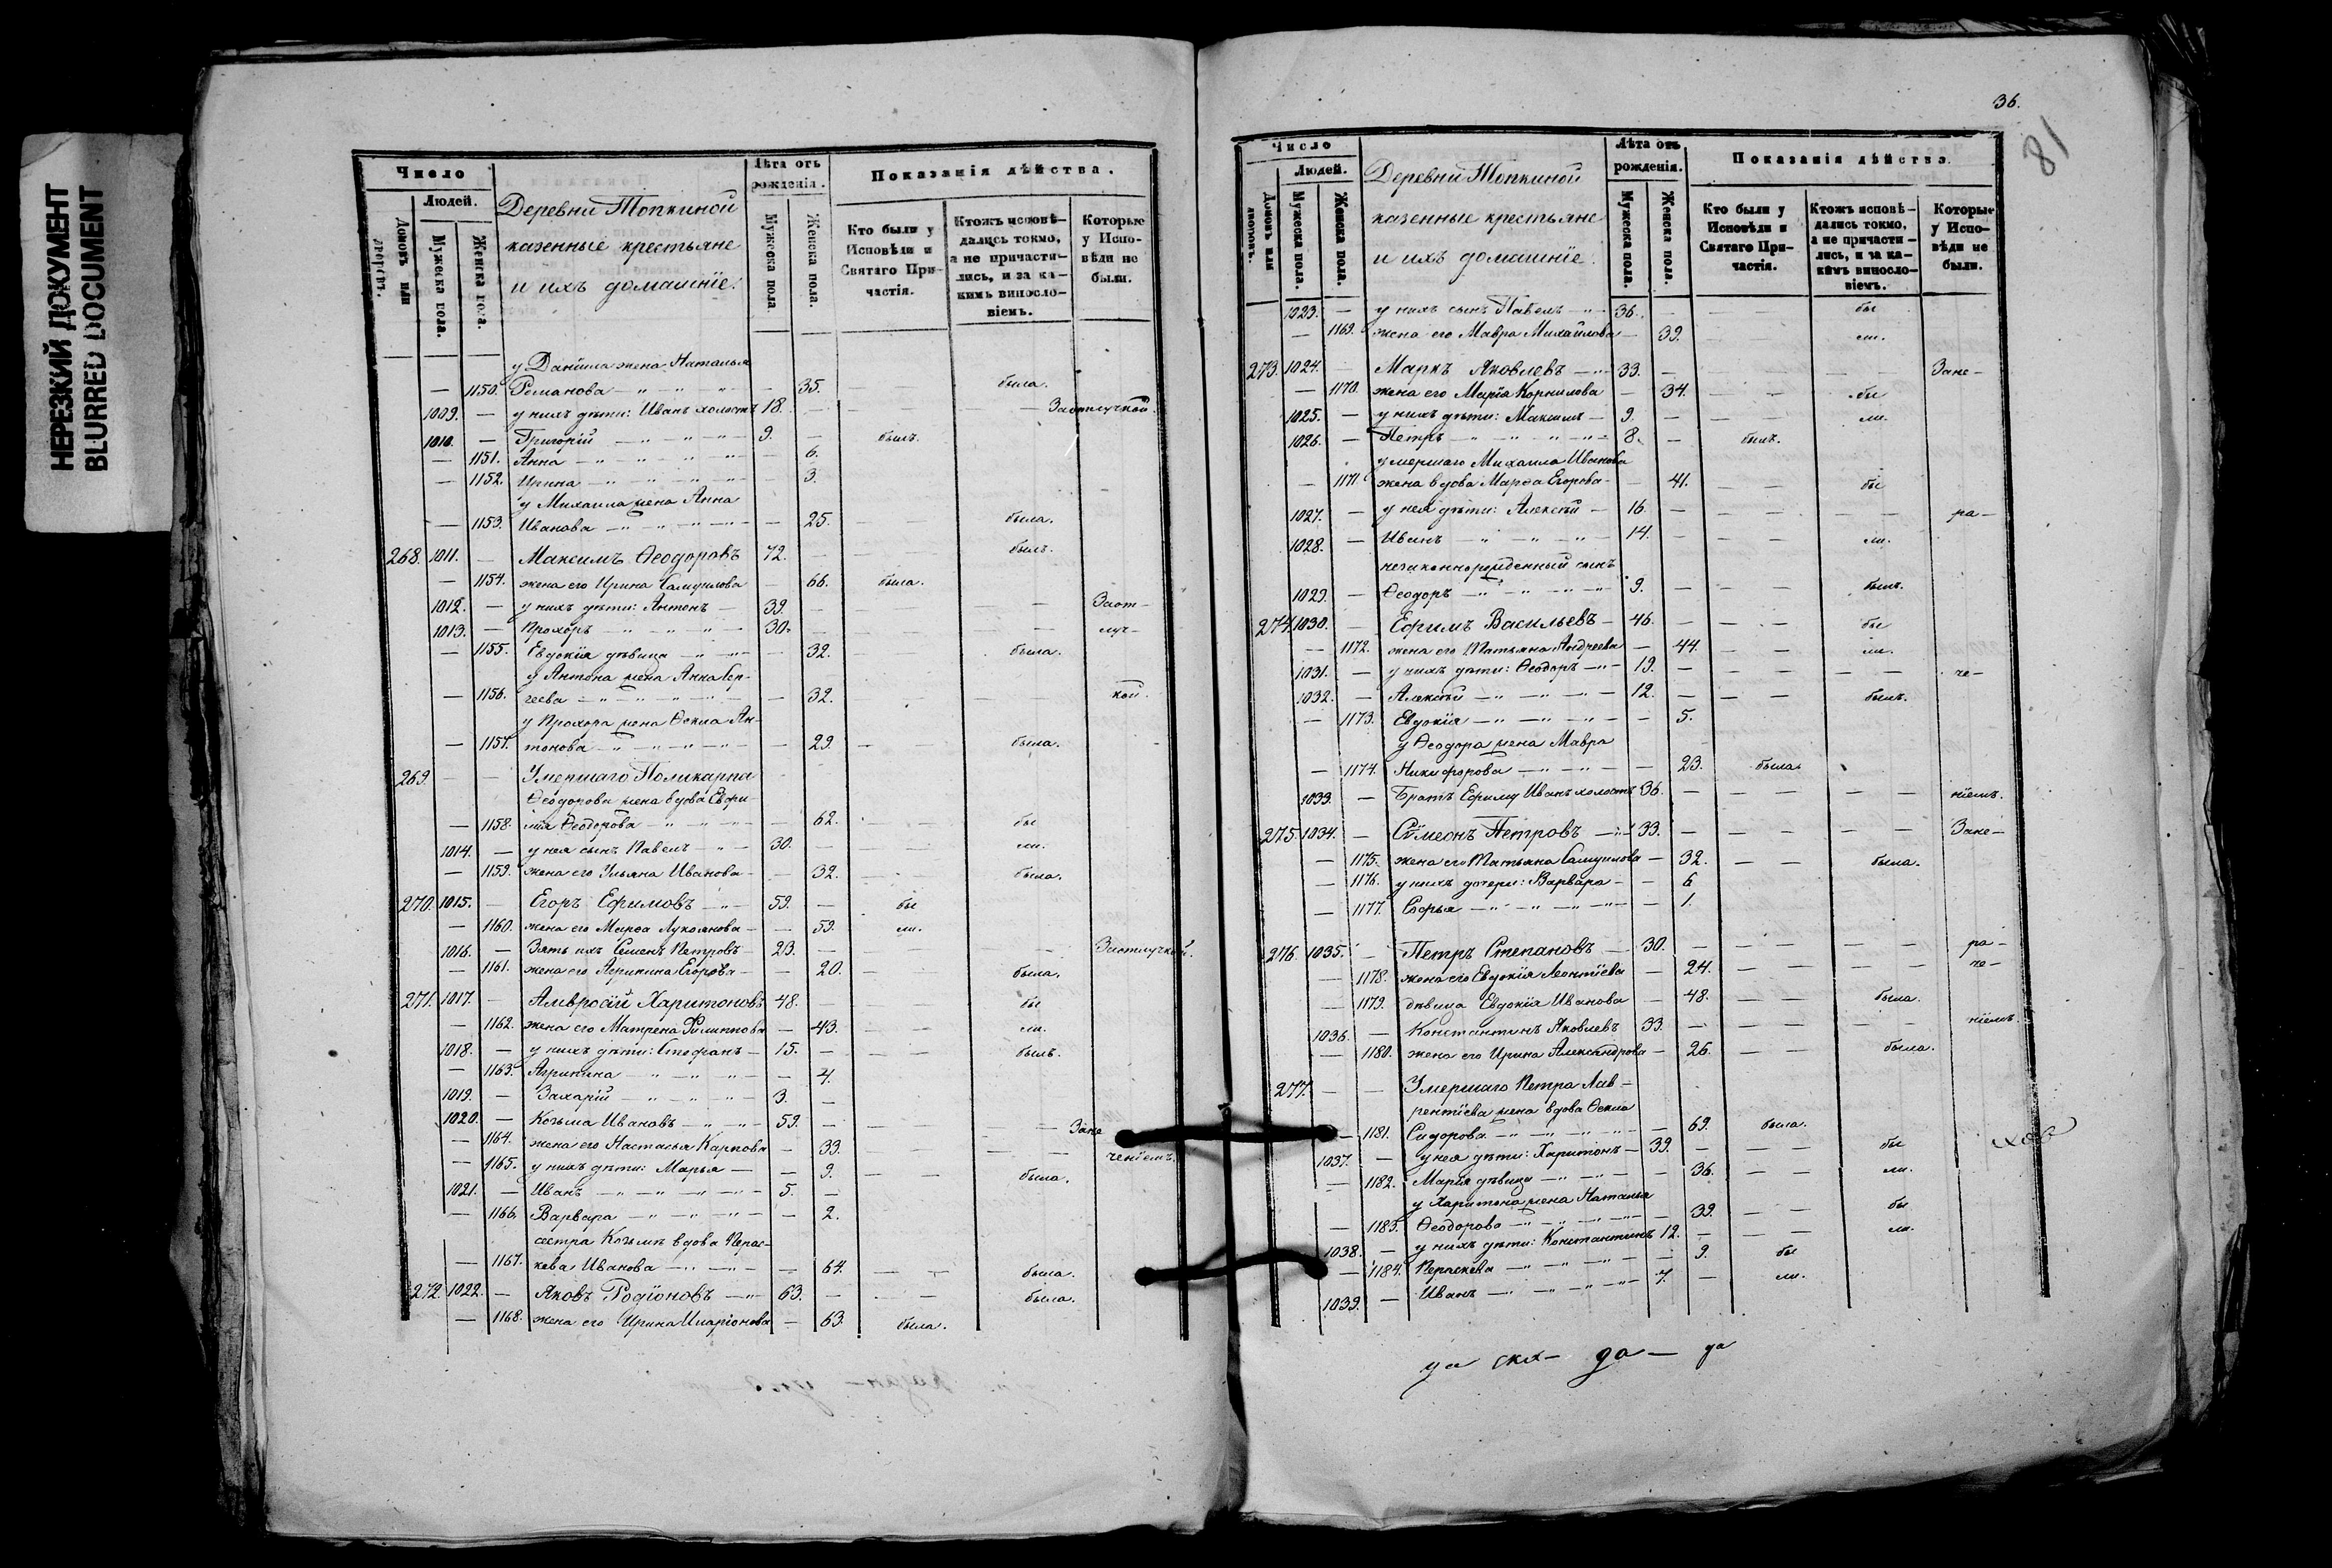 НЕРЕЗКИЙ ДОКУМЕНТ
BLURRED DOCUMENT
Число
Людей.
Домовъ или дворовъ.
Мужеска пола.
Женска пола.
Деревни Топкиной
казенные крестьяне
и ихъ домашніе.
Лѣта отъ рожденія.
Мужеска пола
Женска пола.
Показанія дѣйства.
Кто были у Исповѣди и Святаго Причастія.
Ктожъ исповѣдались токмо, а не причастились, и за какимъ винословіемъ.
Которые у Исповѣди не были.
у Даниила жена Наталья
— 1150. Романова — 35. была.
1009. — у нихъ дѣти: Иванъ холостъ 18. — За отлучкой.
1010. — Григорій — 9. — былъ.
— 1151. Анна — 6.
— 1152. Ирина — 3.
у Михаила жена Анна
— 1153. Иванова — 25. была.
268. 1011. — Максимъ Ѳеодоровъ 72. — былъ.
— 1154. жена его Ирина Самуилова — 66. была.
1012. — у нихъ дѣти: Антонъ — 39. — За от-
1013. — Прохоръ — 30. — луч-
— 1155. Евдокія дѣвица — 32. была.
у Антона жена Анна Сер-
— 1156. геева — 32. — кой.
у Прохора жена Ѳекла Ан-
— 1157. тонова — 29. — была.
269. — — Умершаго Поликарпа
Ѳеодорова жена вдова Евфи-
— 1158. мія Ѳеодорова — 62. бы
1014. — у нея сынъ Павелъ — 30. — ли.
— 1159. жена его Ульяна Иванова — 32. была.
270. 1015. — Егоръ Ефимовъ — 59. — бы
— 1160. жена его Марѳа Лукоянова — 59. ли.
1016. — Зять ихъ Семенъ Петровъ 23. — За отлучкой.
— 1161. жена его Агрипина Егорова — 20. — была.
271. 1017. — Амвросій Харитоновъ 48. — бы
— 1162. жена его Матрена Филиппова — 43. ли.
1018. — у нихъ дѣти: Стефанъ — 15. — былъ.
— 1163. Агрипина — 4.
1019. — Захарій — 3. —
1020. — Козьма Ивановъ — 59. — За не
— 1164. жена его Настасья Карпова — 33. — ченіемъ.
— 1165. у нихъ дѣти: Марья — 9. — была.
1021. — Иванъ — 5. —
— 1166. Варвара — 2.
сестра Козьмѣ вдова Перас-
— 1167. кева Иванова — 64. — была.
272. 1022. — Яковъ Родіоновъ — 63. — была.
— 1168. жена его Ирина Иларіонова — 63. была.
36.
81
Число
Людей.
Домовъ или дворовъ.
Мужеска пола.
Женска пола.
Деревни Топкиной
казенные крестьяне
и ихъ домашніе.
Лѣта отъ рожденія.
Мужеска пола.
Женска пола.
Показанія дѣйства.
Кто были у Исповѣди и Святаго Причастія.
Ктожъ исповѣдались токмо, а не причастились, и за какимъ винословіемъ.
Которые у Исповѣди не были.
1023. — у нихъ сынъ Павелъ — 36. — бы
— 1169. жена его Мавра Михайлова — 39. ли.
273. 1024. — Маркъ Яковлевъ — 33. — За не-
— 1170. жена его Марія Корнилова — 34. — бы
1025. — у нихъ дѣти: Максимъ — 9. — ли.
1026. — Петръ — 8. — былъ.
умершаго Михаила Иванова
— 1171. жена вдова Марѳа Егорова — 41. — бы
1027. — у нея дѣти: Алексѣй — 16. — ра-
1028. — Иванъ — 14. — ли.
незаконнорожденный сынъ
1029. — Ѳеодоръ — 9. — былъ.
274. 1030. — Ефимъ Васильевъ — 46. — бы
— 1172. жена его Татьяна Андреева — 44. — ли.
1031. — у нихъ дѣти: Ѳеодоръ — 19. — че-
1032. — Алексѣй — 12. — былъ.
— 1173. Евдокія — 5.
у Ѳеодора жена Мавра
— 1174. Никифорова — 23. была.
1033. — Братъ Ефиму Иванъ холостъ 36. — ніемъ.
275. 1034. — Сѵмеонъ Петровъ — 33. — За не-
— 1175. жена его Татьяна Самуилова — 32. — была.
— 1176. у нихъ дочери: Варвара — 6
— 1177. Софья — 1.
276. 1035. — Петръ Степановъ — 30. — ра-
— 1178. жена его Евдокія Леонтіева — 24. — че-
— 1179. дѣвица Евдокія Иванова — 48. — была.
1036. — Константинъ Яковлевъ 33. — ніемъ.
— 1180. жена его Ирина Александрова — 26. — была.
277. — — Умершаго Петра Лав-
рентіева жена вдова Ѳекла
— 1181. Сидорова — 69. была.
1037. — у нея дѣти: Харитонъ — 39. — бы
— 1182. Марія дѣвица — 36. — ли.
у Харитона жена Наталья
— 1183. Ѳеодорова — 39. — бы
1038. — у нихъ дѣти: Константинъ 12. — ли.
— 1184. Пераскева — 9. бы
1039. — Иванъ — 7. — ли.